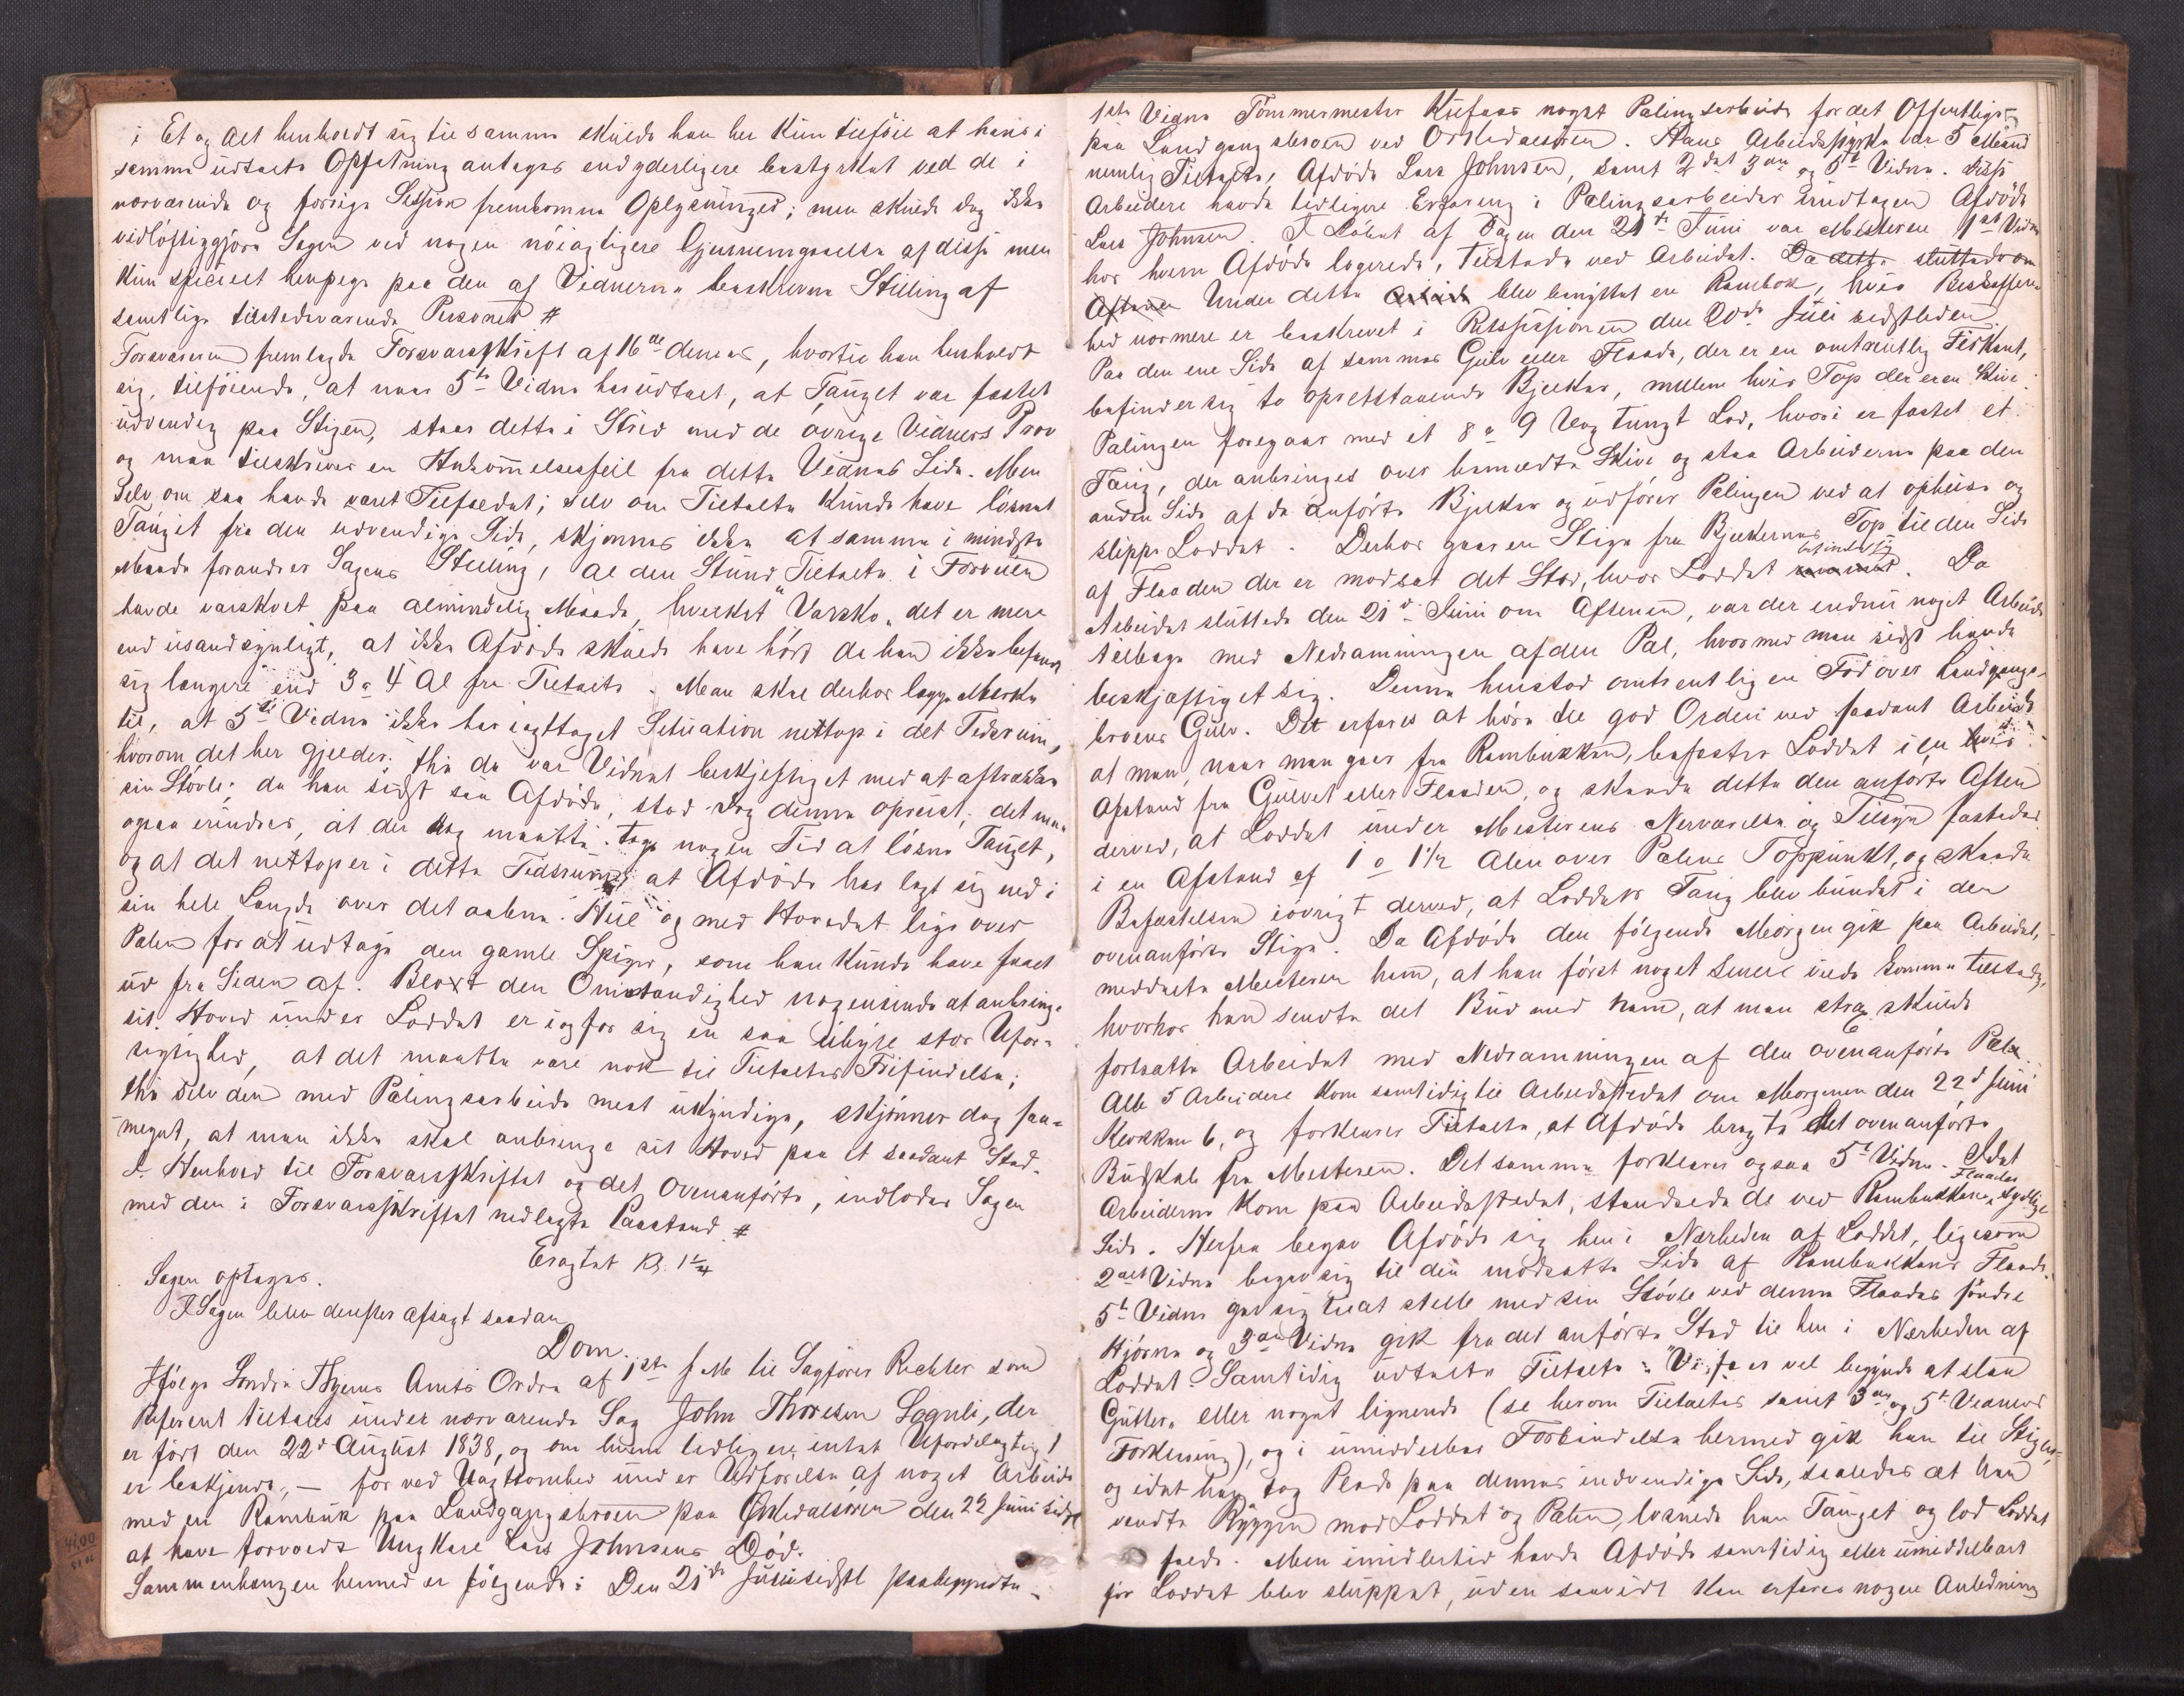 i Et og Alt henholdt sig til samme skulde han her kun tilføie at hans i
samme udtalte Opfatning antages end yderligere bestyrket ved de i
nærværende og forrige Session fremkomne Oplysninger; men skulde dog ikke
vidløftiggjøre Sagen ved nogen nøiagtigere Gjennemgaaelse af disse men
kun specielt henpege paa den af Vidnerne beskrevne Stilling af
samtlige tilstedeværende Personer #
Forsvareren fremlagde Forsvarsskrift af 16de dennes, hvortil han henholdt
sig, tilføiende, at naar 5te Vidne har udtalt, at Tauget var fæstet
udvendig paa Stigen, staar dette i Strid med de øvrige Vidners Prov
og maa tilskrives en Erkjendelsesfeil fra dette Vidnes Side. Men
selv om saa havde været Tilfældet; selv om Tiltalte kunde have løsnet
Tauget fra den udvendige Side, skjønnes ikke at samme i mindste
Maade forandrer Sagens Stilling, al den Stund Tiltalte i Forveien
havde varskoet paa almindelig Maade, hvilket "Varsko" det er mere
end usandsynligt, at ikke Afdøde skulde have hørt da han ikke befandt
sig længere end 3 a 4 Al fra Tiltalte. Man skal derhos lægge Mærke
til, at 5te Vidne ikke har iagttaget Situation nettop i det Tidsrum,
hvorom det her gjælder; thi da var Vidnet beskjæftiget med at aftrække
sin Støvle; da han sidst saa Afdøde, stod dog denne opreist; det maa
ogsaa erindres, at der dog maatte tage nogen Tid at løsne Tauget,
og at det nettop er i dette Tidsrum at Afdøde har lagt sig ned i
sin hele Længde over det aabne Hul og med Hovedet lige over
Pælen for at udtage den gamle Spiger, som han kunde have faaet
ud fra Siden af. Blot den Omstændighed nogensinde at anbringe
sit Hoved under Loddet er i og for sig en saa uhyre stor Ufor-
sigtighed, at det maatte være nok til Tiltaltes Frifindelse;
thi selv den med Pælingsarbeide mest ukyndige, skjønner dog saa-
meget, at man ikke skal anbringe sit Hoved paa et saadant Sted.
I Henhold til Forsvarsskriftet og det ovenanførte, indlodes Sagen
med den i Forsvarsskriftet nedlagte Paastand #
Eragtet Kl. 1¼
Sagen optages.
I Sagen blev derefter afsagt saadan
Dom.
Ifølge Søndre Amts Ordre af 1ste f. M. til Sagfører Richter som
Referent tiltales under nærværende Sag John Thoresen Sognli, der
er født den 22de August 1838, og om hvem tidligere intet Ufordelagtigt
er bekjendt, — for ved Uagtsomhed under Udførelse af noget Arbeide
med en Rambuk paa Landgangsbroen paa Orkedalsøren den 22 Juni sidstl
at have forvoldt Ungkarl Lars Johnsens Død.
Sammenhængen hermed er følgende: Den 21de Juni sidstl paabegyndte
1ste Vidne Tømmermester noget Pælingsarbeide for det Offentlige
paa Landgangsbroen ved Orkedalsøren. Hans Arbeidsstyrke var 5 Mænd
nemlig Tiltalte, Afdøde Lars Johnsen, samt 2det 3die og 5te Vidne. Disse
Arbeidere havde tidligere Erfaring i Pælingsarbeider undtagen Afdøde
Lars Johnsen. I Løbet af Dagen den 21de Juni var Mesteren 1ste Vidne
hos hvem Afdøde logerede, tilstede ved Arbeidet. Da dette sluttede om
Aftenen Under dette Arbeide blev benyttet en Rambok, hvis Beskaffen-
hed nærmere er beskrevet i Retssessionen den 20de Juli sidstleden
Paa den ene Side af sammes Gulv eller Flaade, der er en omtrentlig Firkant,
befinder sig to opretstaaende Bjelker, mellem hvis Top der er en Skive.
Pælingen foregaar med et 8 a 9 Vog tungt Lod, hvori er fæstet et
Taug, der anbringes over bemeldte Skive og staa Arbeiderne paa den
anden Side af de anførte Bjelker og udfører Pælingen ved at opheise og
slippe Loddet. Derhos gaar en Stige fra Bjelkernes Top til den Side
af Flaaden der er modsat det Sted, hvor Loddet befinder sig. Da
Arbeidet sluttede den 21de Juni om Aftenen, var der endnu noget Arbeide
tilbage med Nedramningen af den Pæl, hvormed man sidst havde
beskjæftiget sig. Denne henstod omtrentlig en Fod over Landgangs-
broens Gulv. Det erfares at høre til god Orden ved saadant Arbeide
at man, naar man gaar fra Rambukken, befæster Loddet i en vis
Afstand fra Gulvet eller Flaaden, og skeede dette den anførte Aften
derved, at Loddet under Mesterens Nærværelse og Tilsyn fæstedes
i en Afstand af 1 a 1½ Alen over Pælens Toppunkt, og skeede
Befæstelsen iøvrigt derved, at Loddets Taug blev bundet i den
ovenanførte Stige. Da Afdøde den følgende Morgen gik paa Arbeidet,
meddelte Mesteren ham, at han først noget senere vilde komme tilstede,
hvorhos han sendte det Bud med ham, at man strax skulde
fortsætte Arbeidet med Nedramningen af den ovenanførte Pæl.
Alle 5 Arbeidere kom samtidig til Arbeidsstedet om Morgenen den 22de Juni
Klokken 6, og forklarer Tiltalte, at Afdøde bragte det ovenanførte
Budskab fra Mesteren. Det samme forklarer ogsaa 5te Vidne. Idet
Arbeiderne kom paa Arbeidsstedet, standsede de ved Rambukkens Flaades sydlige
Side. Herfra begav Afdøde sig hen i Nærheden af Loddet, ligesom
2det Vidne begav sig til den modsatte Side af Rambukkens Flaade.
5te Vidne gav sig til at stelle med sin Støvle ved denne Flaades søndre
Hjørne og 3die Vidne gik fra det anførte Sted til hen i Nærheden af
Loddet. Samtidig udtalte Tiltalte: "Vi faar vel begynde at slaa
Gutter" eller noget lignende (se herom Tiltaltes samt 3die og 5te Vidners
Forklaring), og i umiddelbar Forbindelse hermed gik han til Stigen,
og idet han tog Plads paa dennes indvendige Side, saaledes at han
vendte Ryggen mod Loddet og Pælen, løsnede han Tauget og lod Loddet
falde. Men imidlertid havde Afdøde samtidig eller umiddelbart
før Loddet blev sluppet, uden saavidt kan erfares nogen Anledning